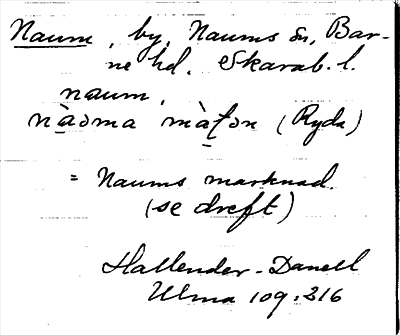 Naum, by, Naums sn, Bar-
ne hd. Skarab. l.
naum,
nàoma màṭən (Ryda)
= Naums marknad.
(se dreft)
Hallender-Danell
Ulma 109:216